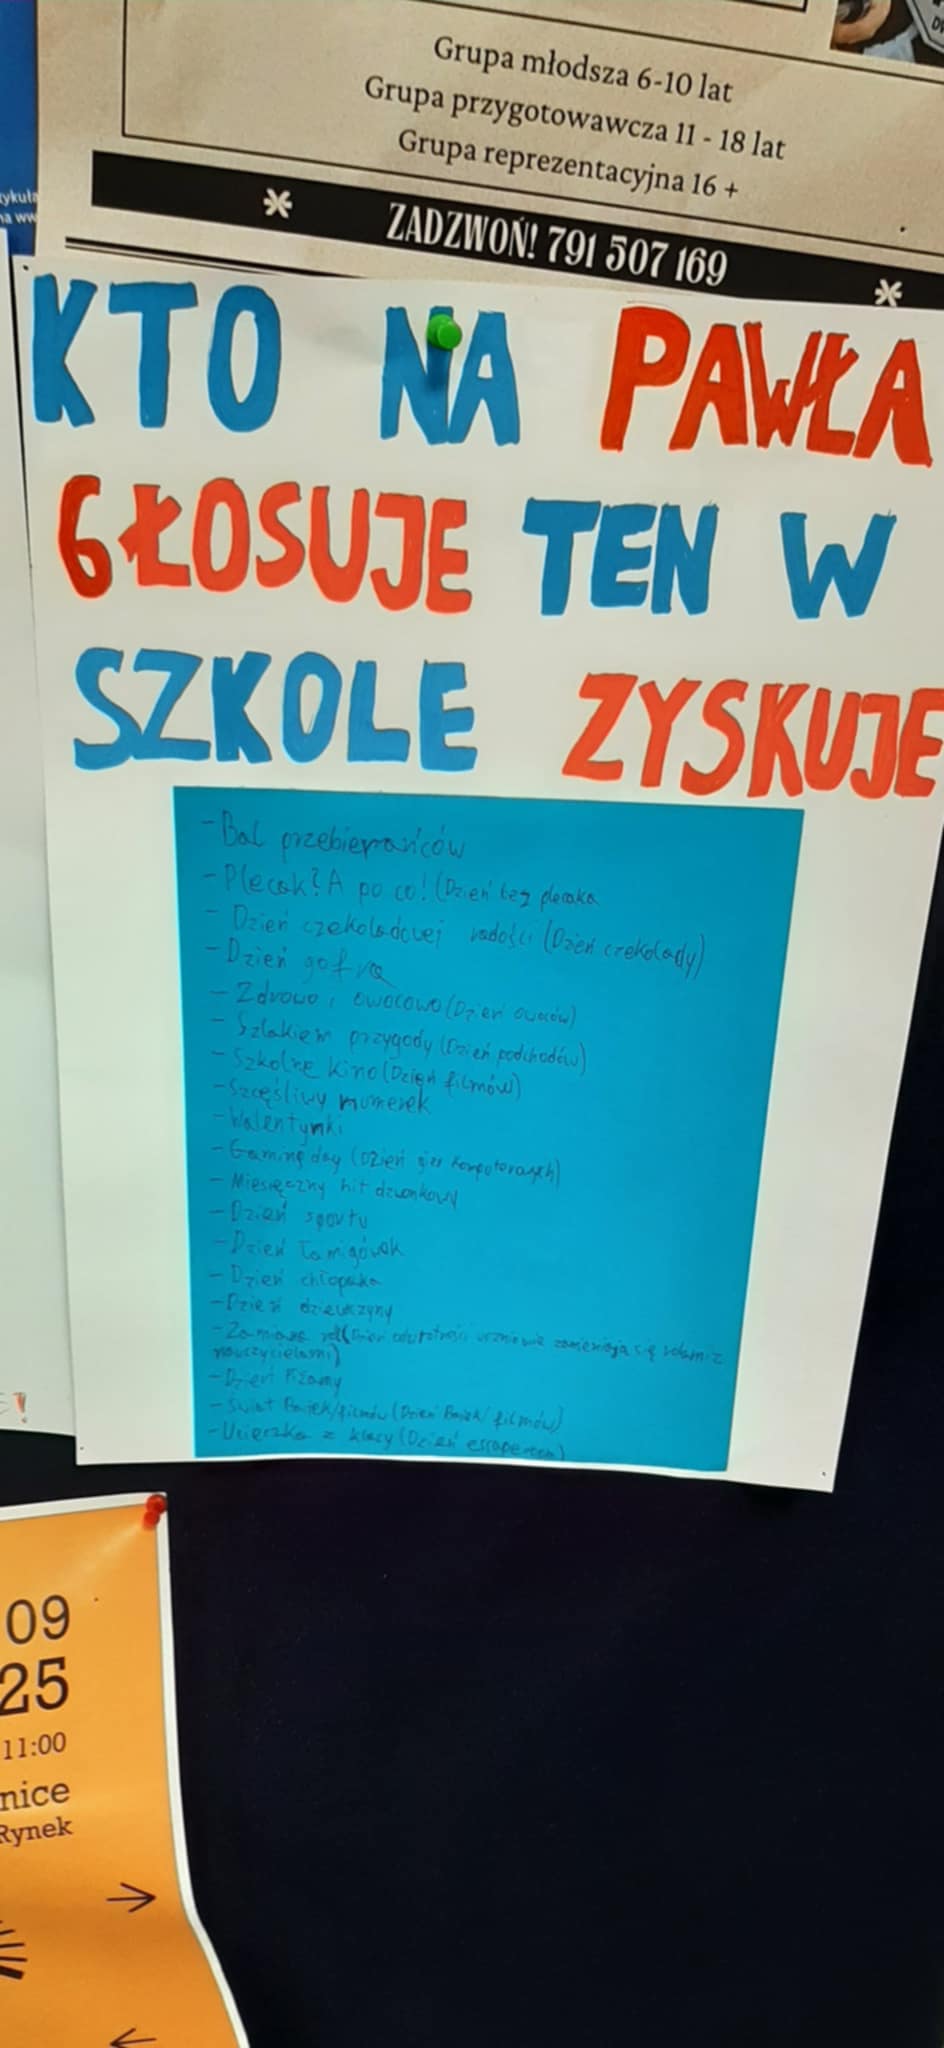 Grupa młodsza 6-10 lat
Grupa przygotowawcza 11 - 18 lat
Grupa reprezentacyjna 16 +
ZADZWOŃ! 791 507 169
KTO NA PAWŁA
GŁOSUJE TEN W
SZKOLE ZYSKUJE
- Bal przebierańców
- Plecak? A po co! (Dzień bez plecaka
- Dzień czekoladowej radości (Dzień czekolady)
- Dzień gofra
- Zdrowo i owocowo (Dzień owoców)
- Szlakiem przygody (Dzień podchodów)
- Szkolne kino (Dzień filmów)
- Szczęśliwy numerek
- Walentynki
- Gaming day (Dzień gier komputerowych)
- Miesięczny hit dzwonkowy
- Dzień sportu
- Dzień Łamigówek
- Dzień chłopaka
- Dzień dziewczyny
- Zamiana ról (Dzień uczniowie zamieniają się rolami z
nauczycielami)
- Dzień Piżamy
- Świat Bajek/filmów (Dzień Bajek/filmów)
- Ucieczka z klasy (Dzień
09
25
11:00
nice
Rynek